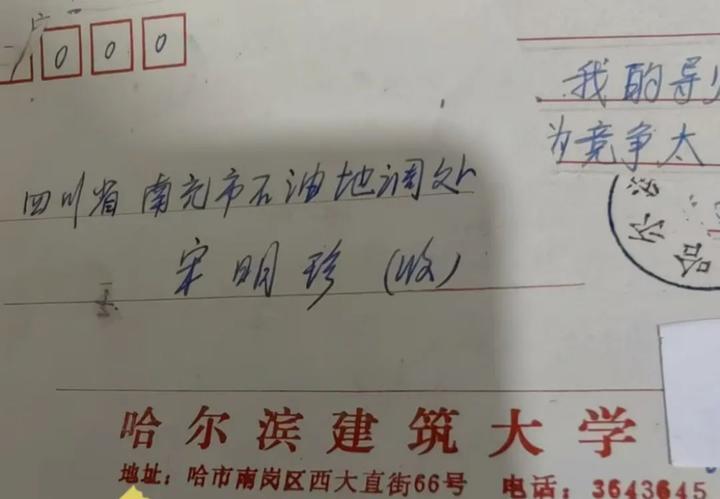 000
我的导
为竞争太
四川省南充市石油地调处
宋明珍（收）
哈尔
哈尔滨建筑大学
地址：哈市南岗区西大直街66号 电话：3643645